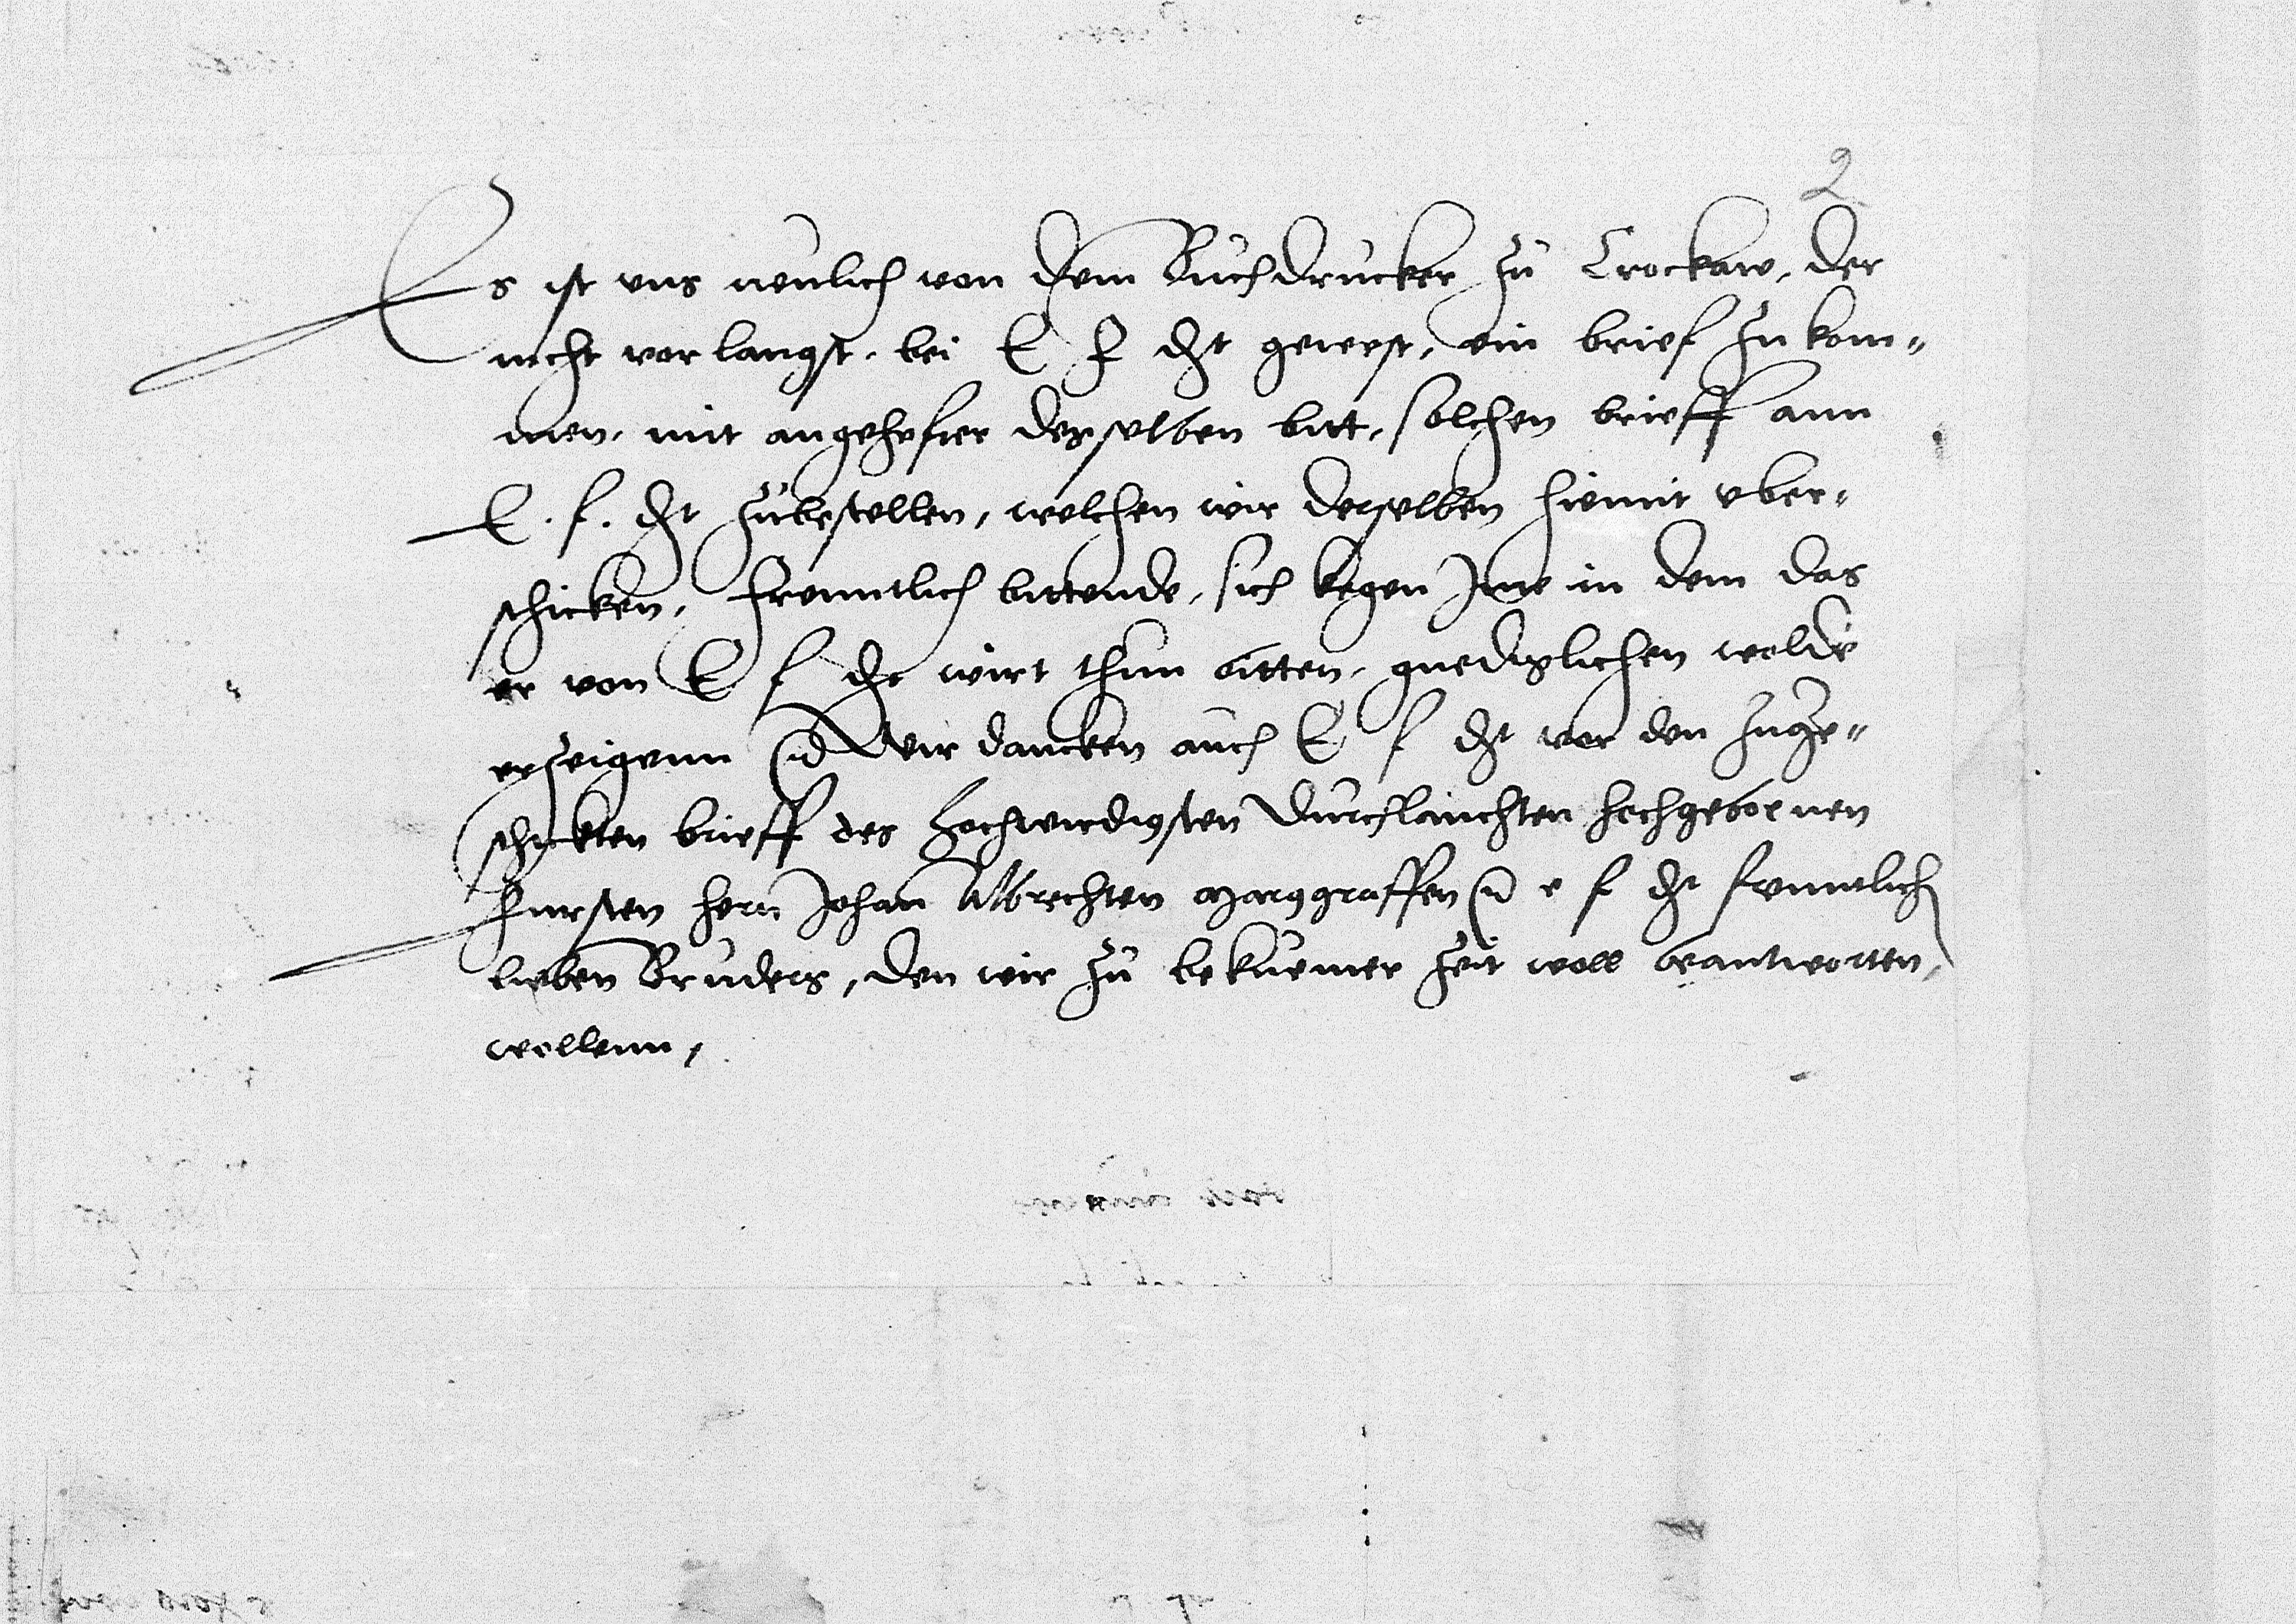 2
Es ist vns neulich von dem Buchdrucker zu Crockaw, der
nicht vor langst, bei E F dht gewest, ein brief zu kom„
men, mit angehefter desselben bitt, solchen brieff ann
E. f. dht zubestellen, welchen wir derselben hiemit vber„
schicken, freuntlich bittende, sich kegen Ime in dem das
er von E f dt wirt thun bitten, gnediglichen wolde
erzeigenn Wir dancken auch E f dht vor den zuge„
schickten brieff des hochwirdigsten durchlauchten hochgebornen
fursten hern Johan Albrechten Marggraffen e f dht freuntlich
lieben Bruders, den wir zu bekuemer zeit woll beantworten,
wollenn,